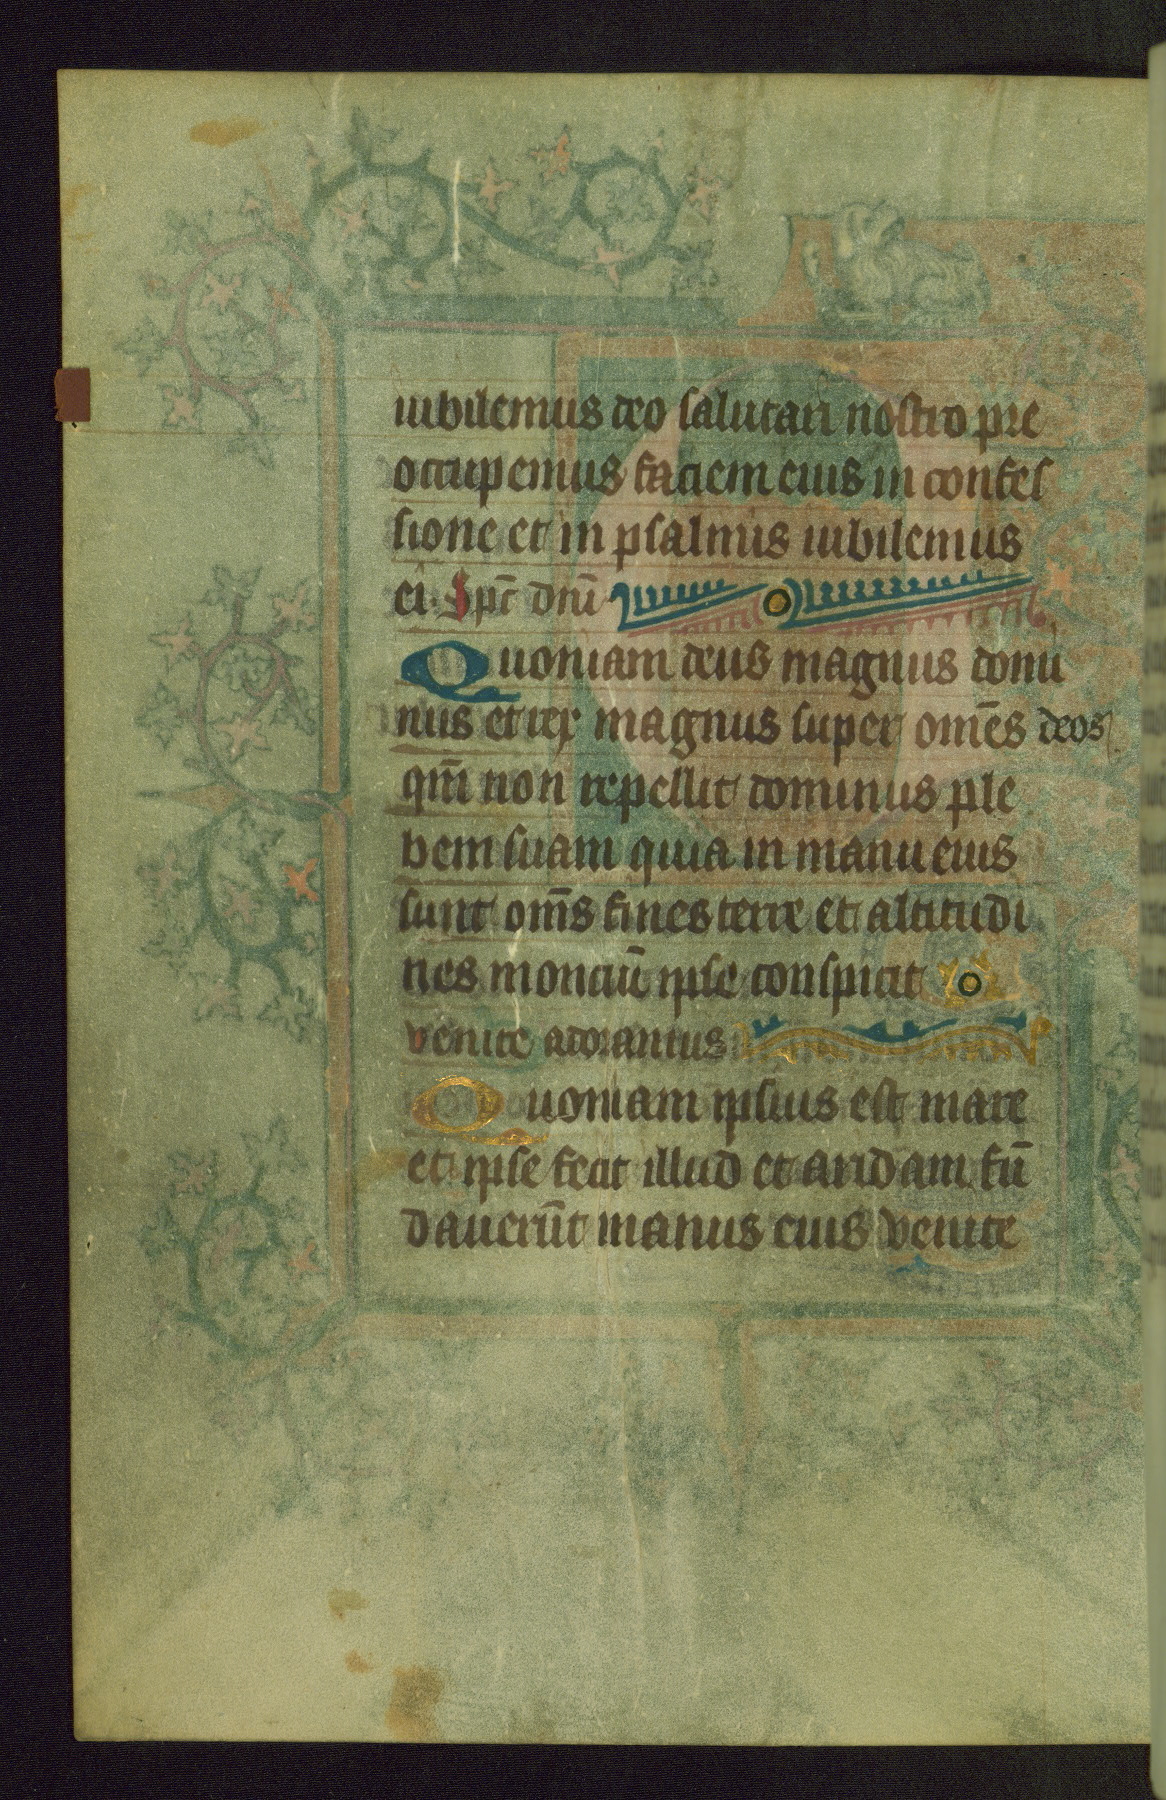 iubilemus deo salutari nostro pre
occupemus faciem eius in confes
sione et in psalmis iubilemus
ei. Sp̄c dn̄i
Quoniam deus magnus domi
nus et rex magnus super om̄es deos
qm̄ non repellit dominus ple
bem suam quia in manu eius
sunt om̄s fines terre et altitudi
nes monciū ipse conspicit
venite adoramus
Quoniam ipsius est mare
et ipse fecit illud et aridam fū
daverūt manus eius venite